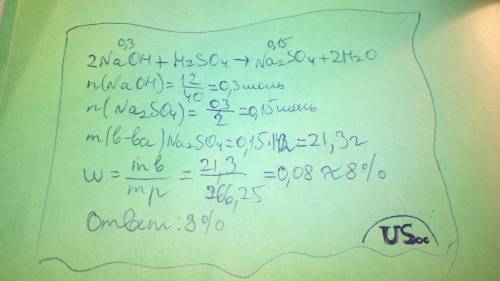 0,3 0,15
2NaOH + H2SO4 → Na2SO4 + 2H2O
n(NaOH) = 12/40 = 0,3 моль
n(Na2SO4) = 0,3/2 = 0,15 моль
m(в-ва) Na2SO4 = 0,15 · = 21,3г
W = mв/mр = 21,3/266,25 = 0,08 ≈ 8%
Ответ: 8%
USoc